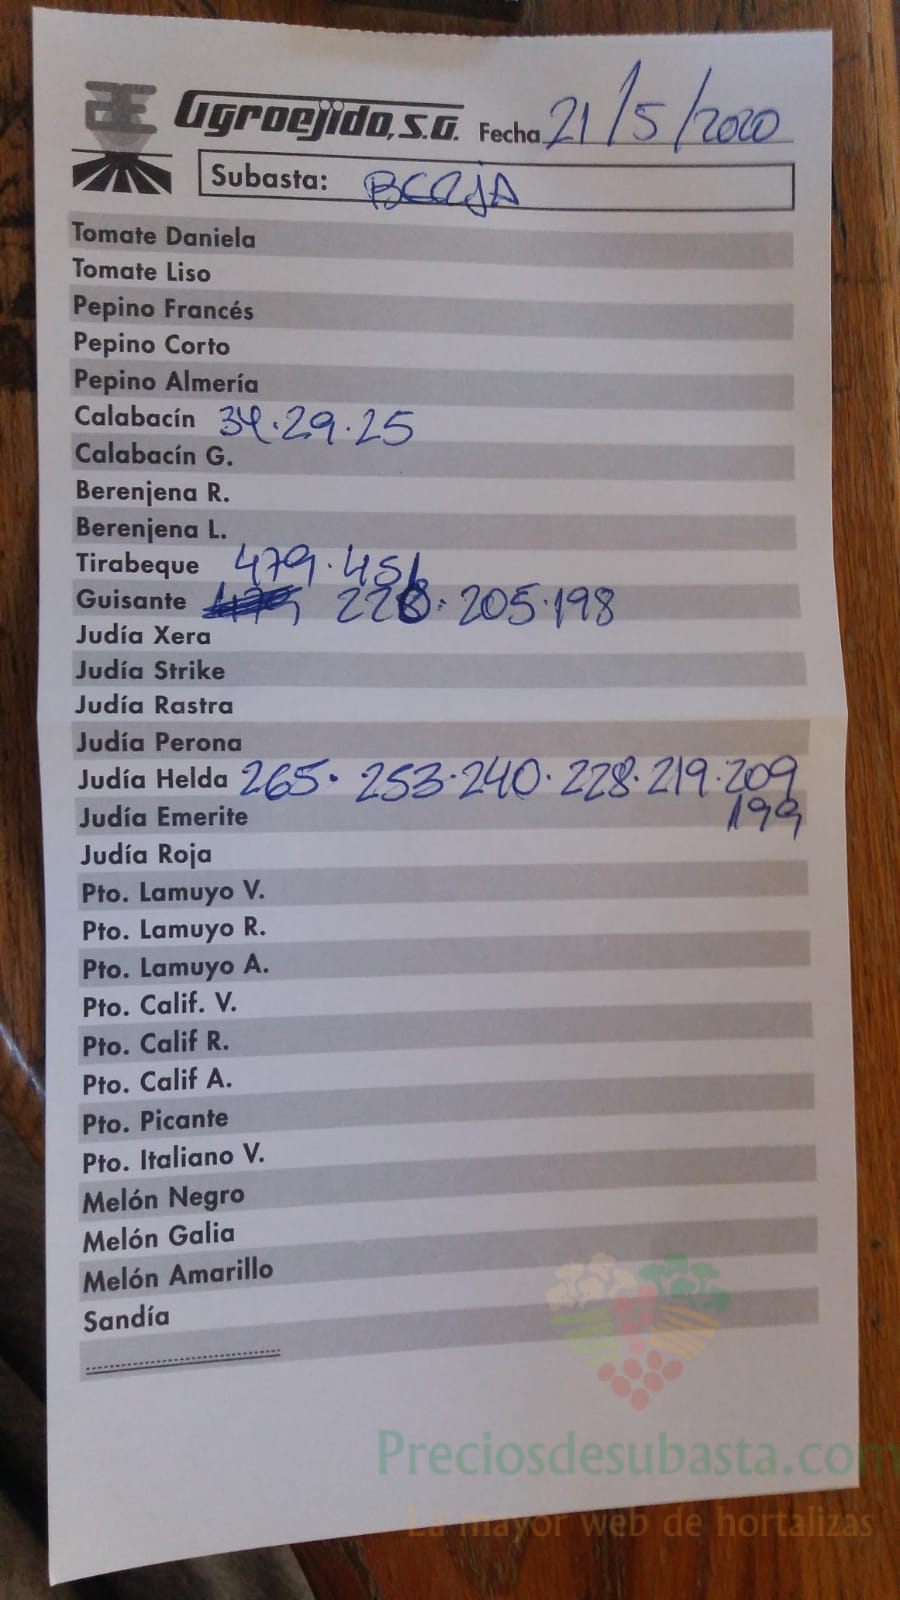 Agroejido, S.A. Fecha 21/5/2020
Subasta: BERJA
Tomate Daniela
Tomate Liso
Pepino Francés
Pepino Corto
Pepino Almería
Calabacín 34·29·25
Calabacín G.
Berenjena R.
Berenjena L.
Tirabeque 479·451
Guisante 226·205·198
Judía Xera
Judía Strike
Judía Rastra
Judía Perona
Judía Helda 265·253·240·228·219·209
Judía Emerite 199
Judía Roja
Pto. Lamuyo V.
Pto. Lamuyo R.
Pto. Lamuyo A.
Pto. Calif. V.
Pto. Calif R.
Pto. Calif A.
Pto. Picante
Pto. Italiano V.
Melón Negro
Melón Galia
Melón Amarillo
Sandía
Preciosdesubasta.com
La mayor web de hortalizas